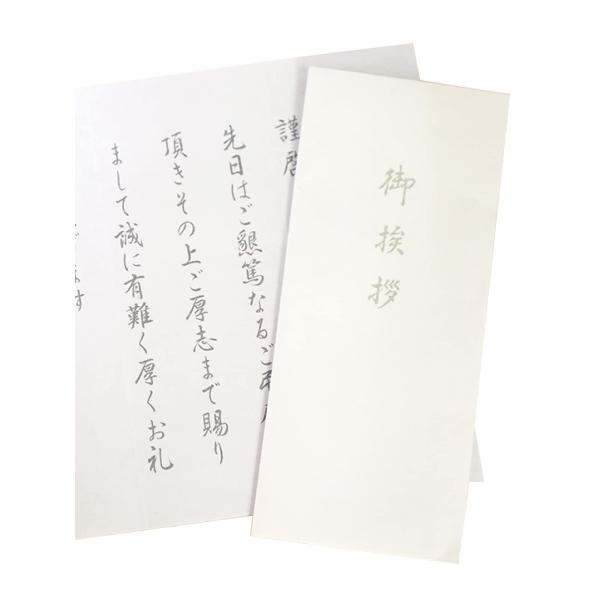 御挨拶
謹啓
先日はご懇篤なるご弔
頂きその上ご厚志まで賜り
まして誠に有難く厚くお礼
ます